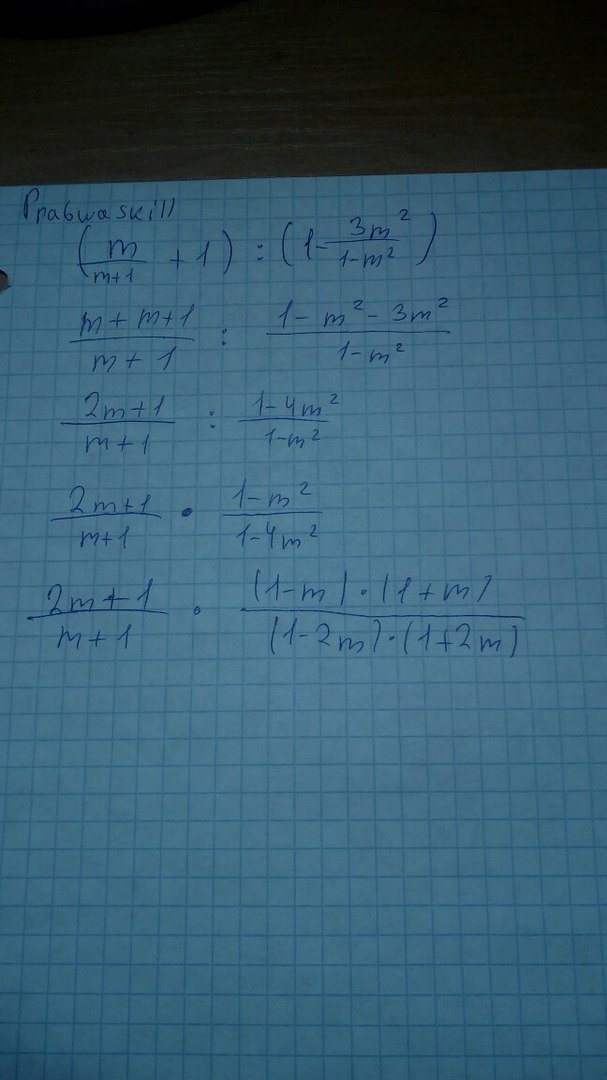 Prabwaskill
(m/(m+1) + 1) : (1 - 3m²/(1-m²))
(m + m+1)/(m + 1) : (1 - m² - 3m²)/(1-m²)
(2m+1)/(m+1) : (1-4m²)/(1-m²)
(2m+1)/(m+1) · (1-m²)/(1-4m²)
(2m+1)/(m+1) · ((1-m)·(1+m))/((1-2m)·(1+2m))